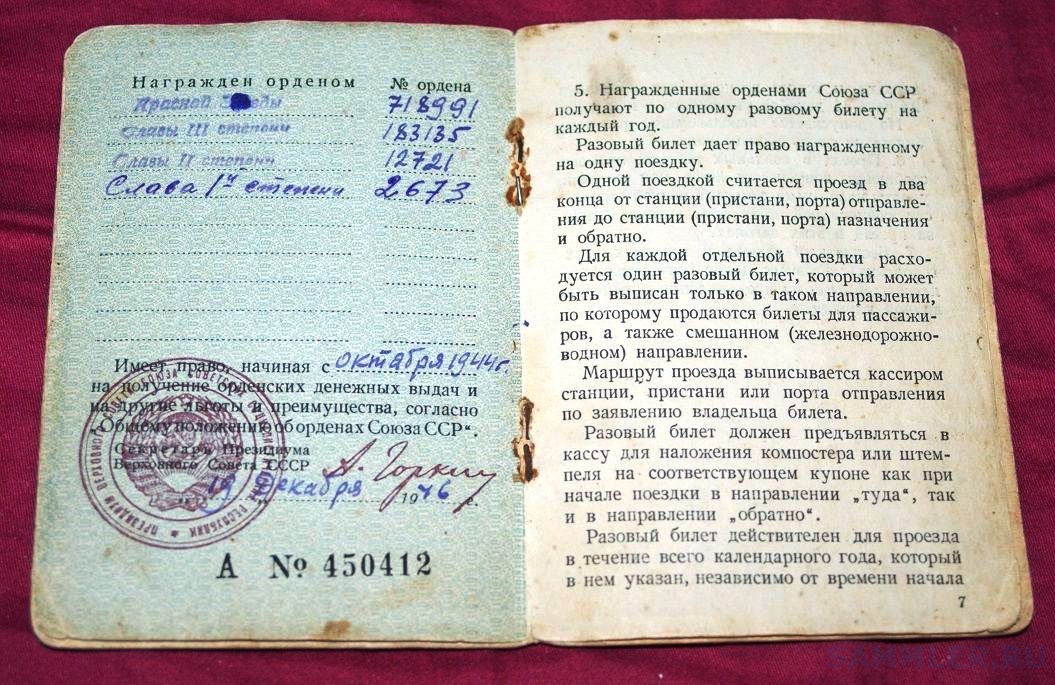 Награжден орденом № ордена
Красной Звезды 718991
Славы III степени 183135
Славы II степени 12721
Слава 1й степени 2673
Имеет право, начиная с октября 1944г.
на получение орденских денежных выдач и
на другие льготы и преимущества, согласно
„Общему положению об орденах Союза ССР“.
Секретарь Президиума
Верховного Совета СССР А. Горкин
19 декабря 1946 г.
А № 450412
5. Награжденные орденами Союза ССР
получают по одному разовому билету на
каждый год.
Разовый билет дает право награжденному
на одну поездку.
Одной поездкой считается проезд в два
конца от станции (пристани, порта) отправле-
ния до станции (пристани, порта) назначения
и обратно.
Для каждой отдельной поездки расхо-
дуется один разовый билет, который может
быть выписан только в таком направлении,
по которому продаются билеты для пассажи-
ров, а также смешанном (железнодорожно-
водном) направлении.
Маршрут проезда выписывается кассиром
станции, пристани или порта отправления
по заявлению владельца билета.
Разовый билет должен предъявляться в
кассу для наложения компостера или штем-
пеля на соответствующем купоне как при
начале поездки в направлении „туда“, так
и в направлении „обратно“.
Разовый билет действителен для проезда
в течение всего календарного года, который
в нем указан, независимо от времени начала
7
SAMMLER.RU